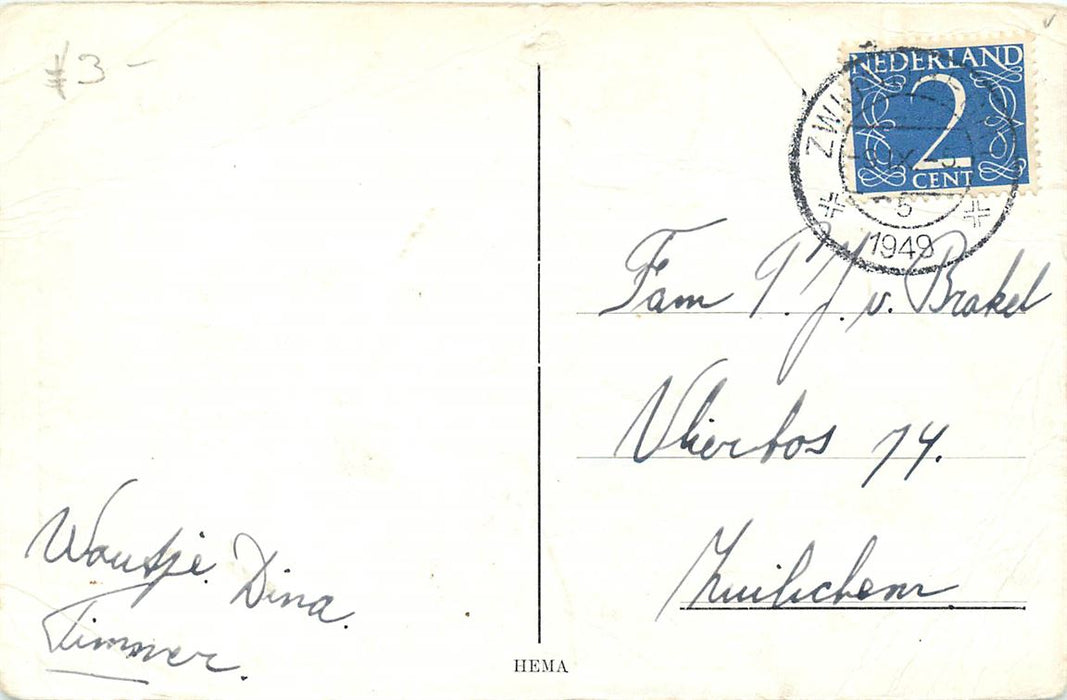 #3-
NEDERLAND
2
CENT
5
1949
Fam T. J. v. Brakel
Vlierbos 74.
Zuilichem
Woutje Dina.
Timmer.
HEMA